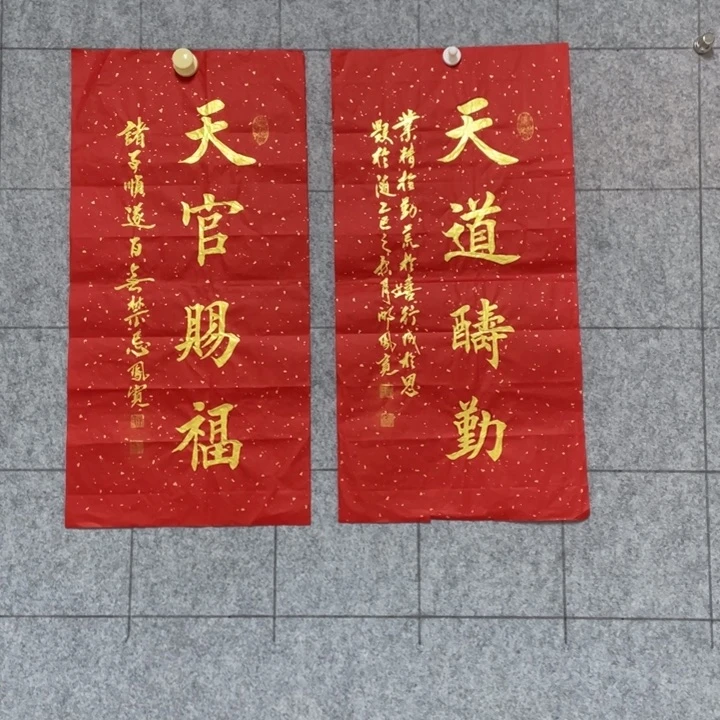 天道醻勤
業精於勤荒於嬉行成於思
毀於隨乙巳之月鳳寬
天官賜福
諸事順遂百無禁忌鳳寬